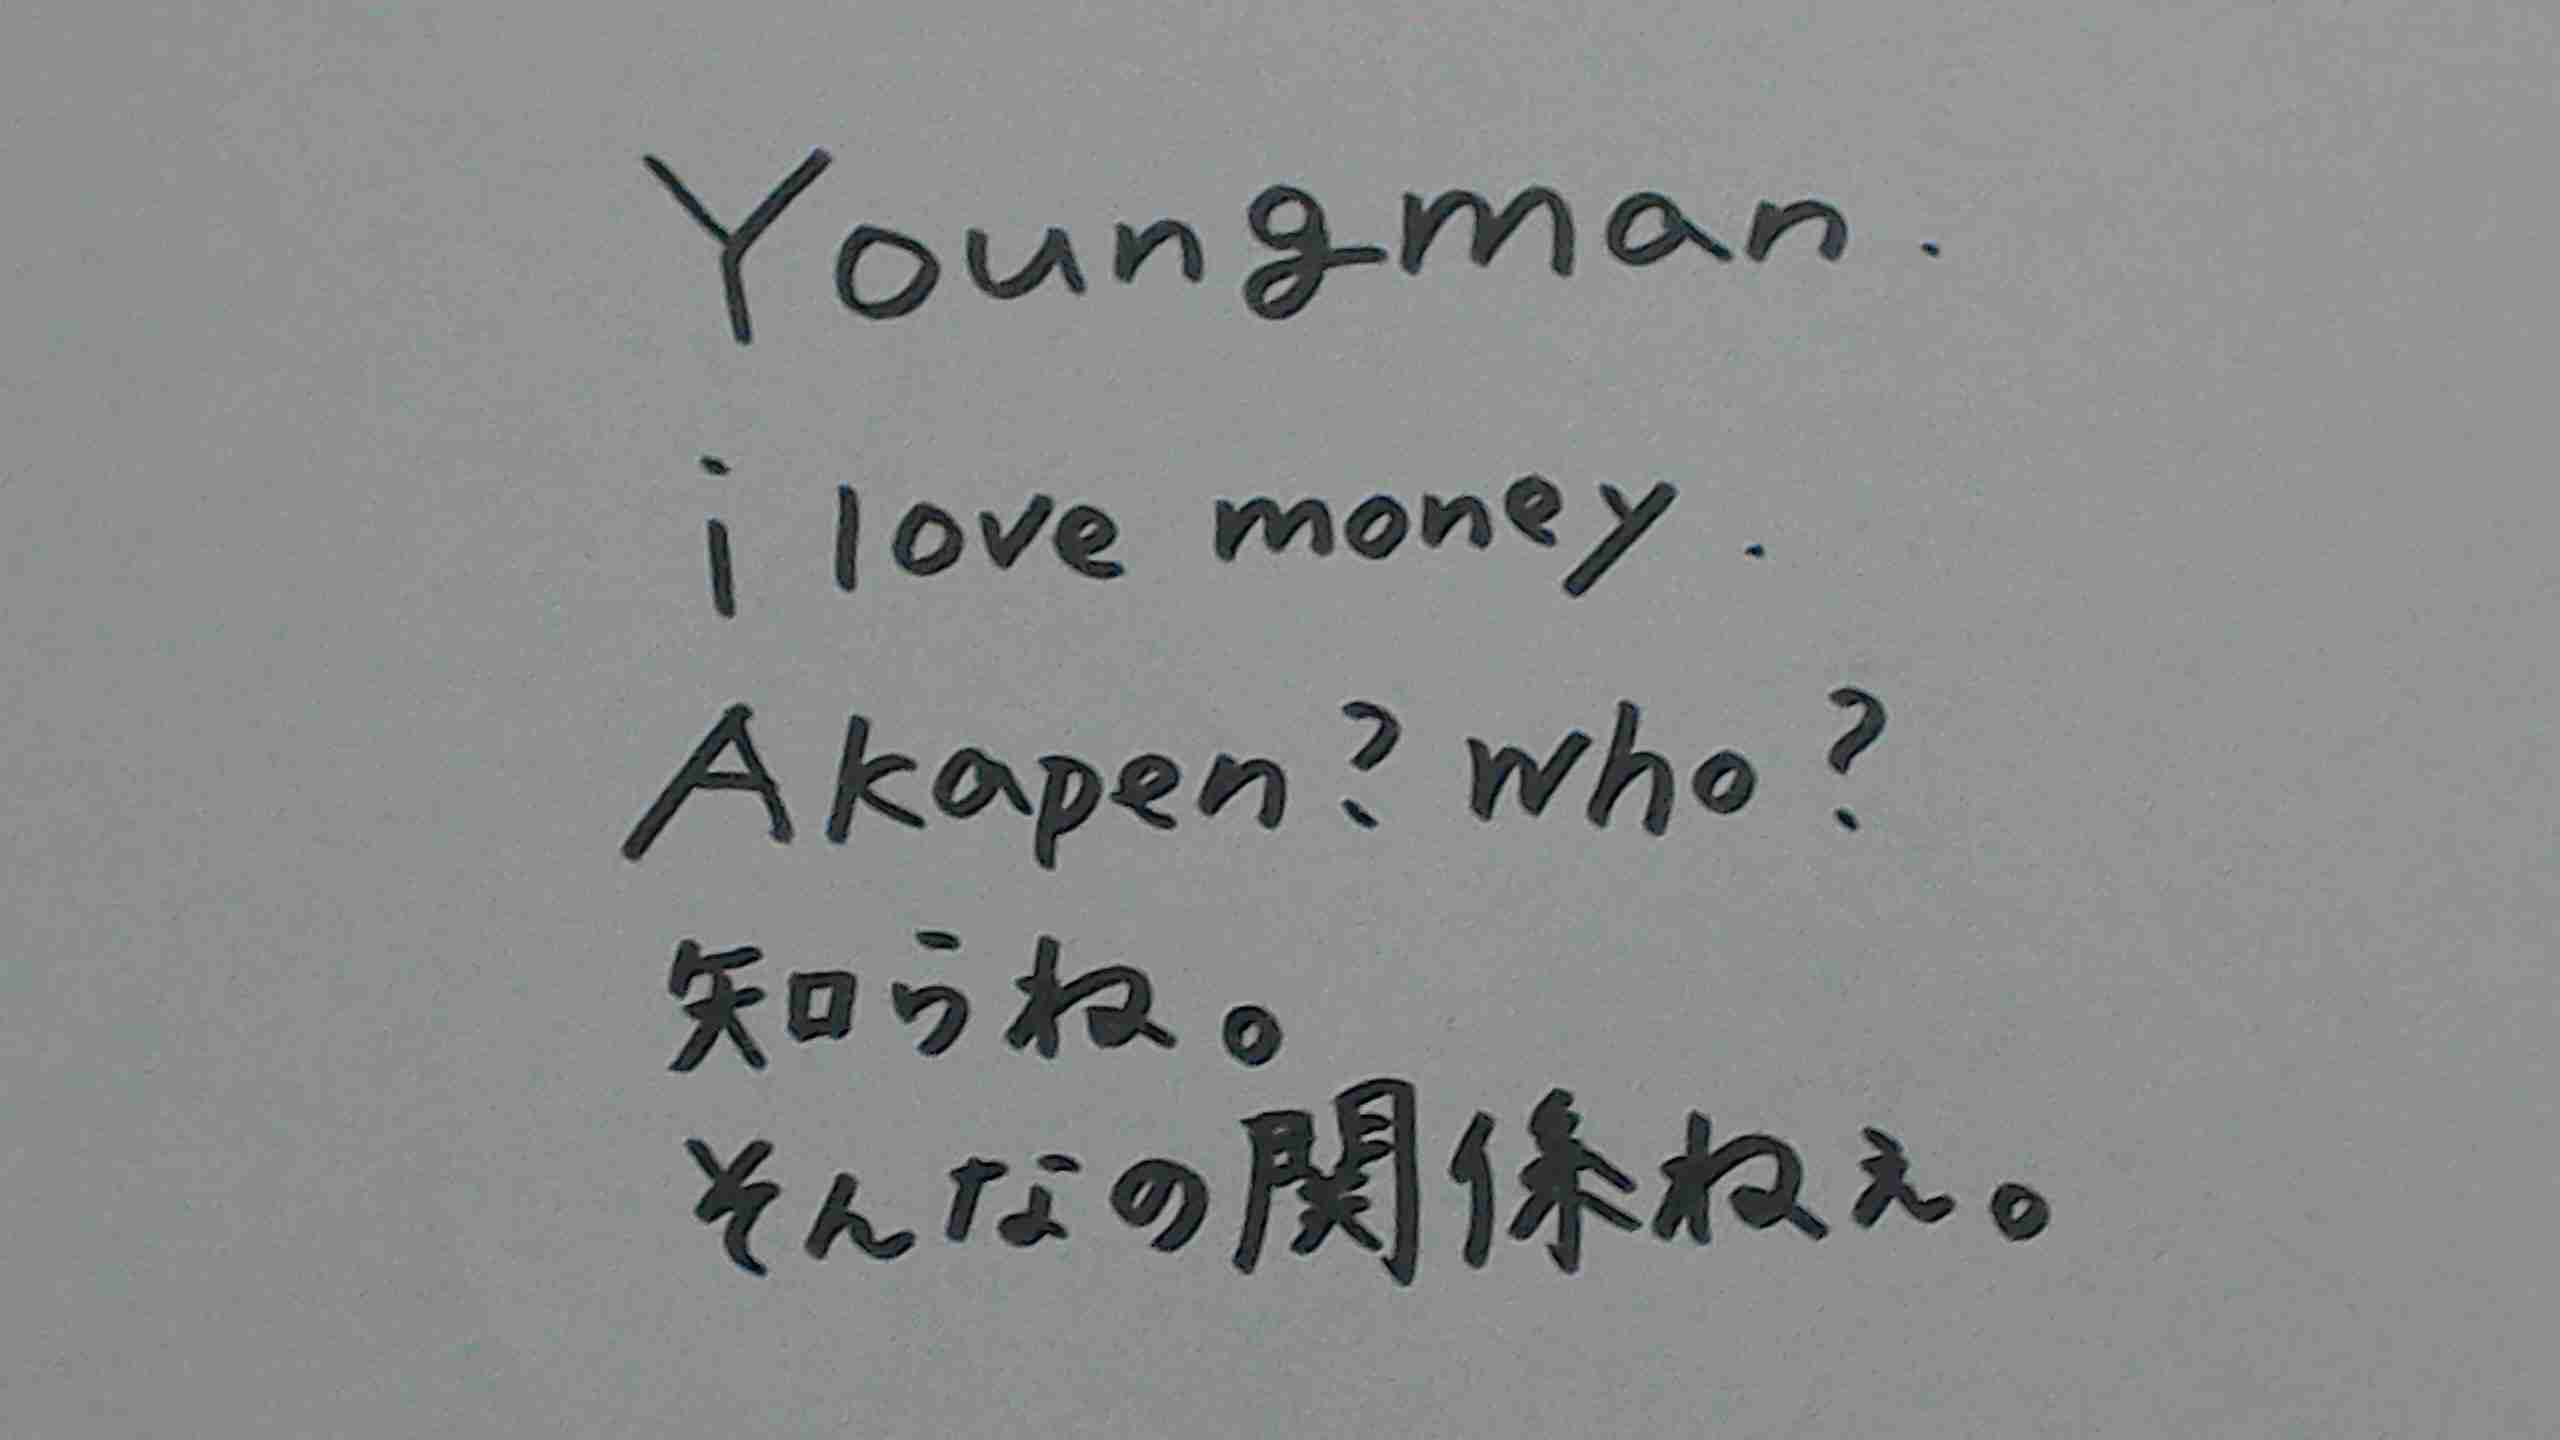 Youngman.
i love money.
Akapen? who?
知らね。
そんなの関係ねぇ。